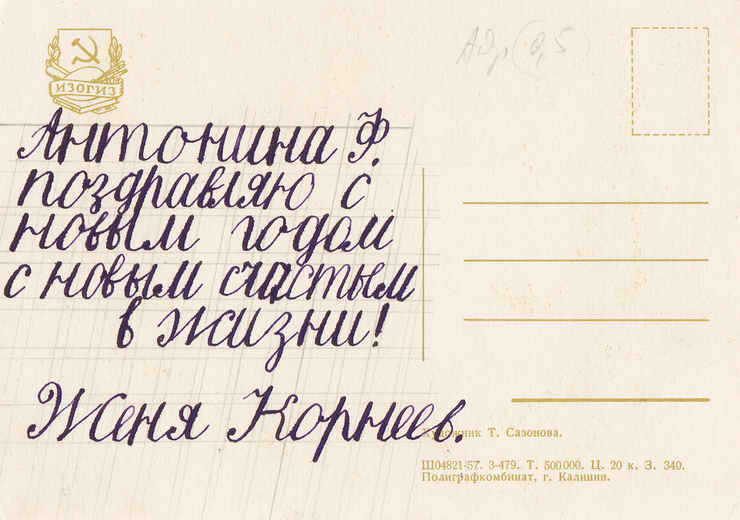 ИЗОГИЗ
Антонина Ф.
поздравляю с
новым годом
с новым счастьем
в жизни!
Женя Корнеев.
Художник Т. Сазонова.
Ш04821-57. З-479. Т. 500000. Ц. 20 к. З. 340.
Полиграфкомбинат, г. Калинин.